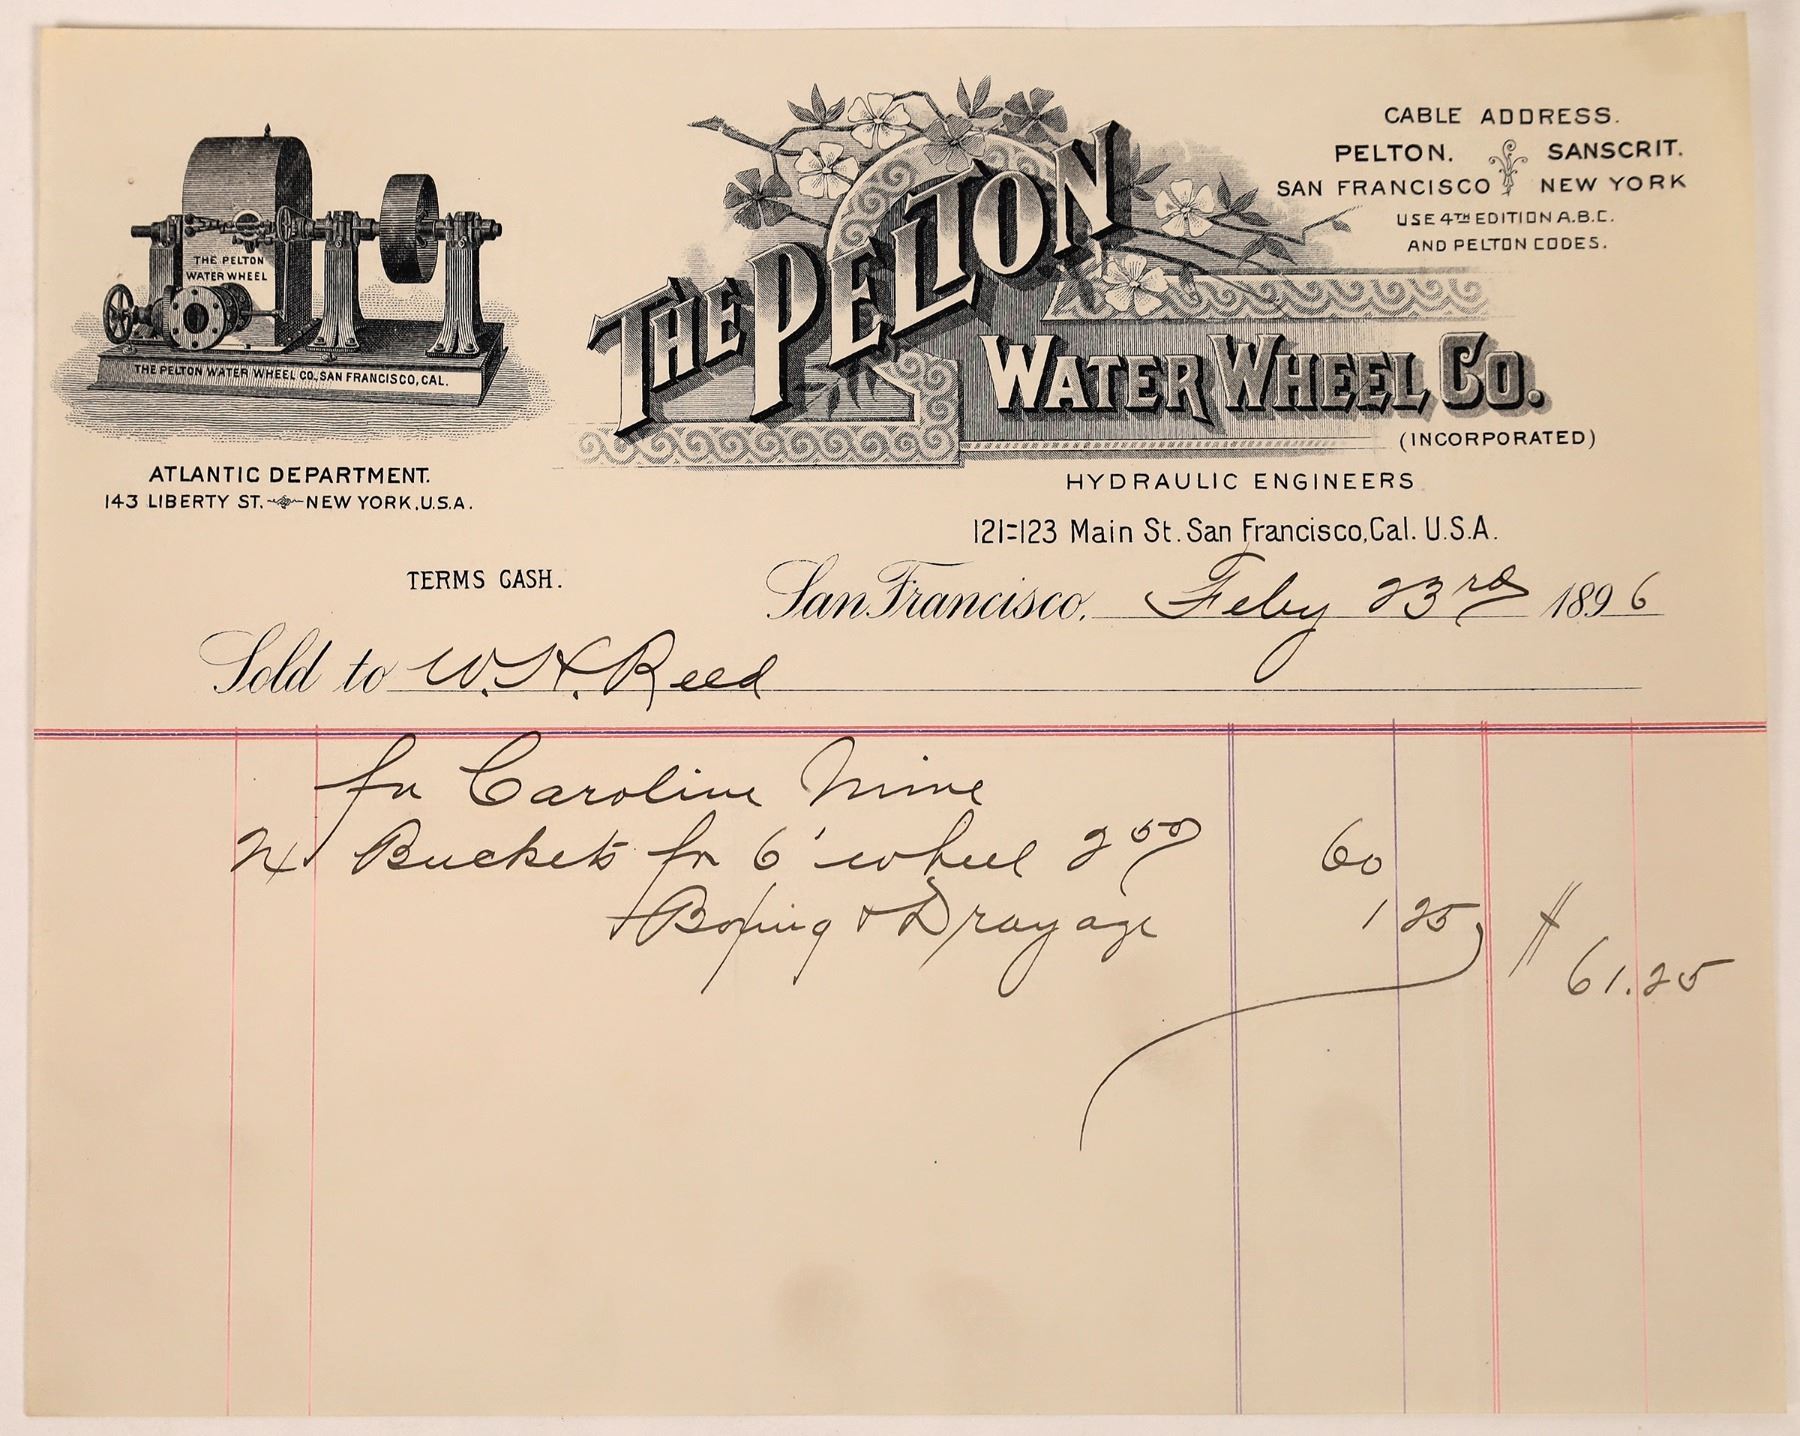 THE PELTON
WATER WHEEL
THE PELTON WATER WHEEL CO. SAN FRANCISCO, CAL.
ATLANTIC DEPARTMENT.
143 LIBERTY ST. NEW YORK, U.S.A.
THE PELTON
WATER WHEEL CO.
(INCORPORATED)
HYDRAULIC ENGINEERS
121=123 Main St. San Francisco, Cal. U.S.A.
CABLE ADDRESS.
PELTON. SANSCRIT.
SAN FRANCISCO NEW YORK
USE 4TH EDITION A.B.C.
AND PELTON CODES.
TERMS CASH.
San Francisco, Feby 23rd 1896
Sold to W. H. Reed
for Caroline Mine
24 Buckets for 6' wheel 2 50 60
Boxing & Drayage 1 25 $
61.25